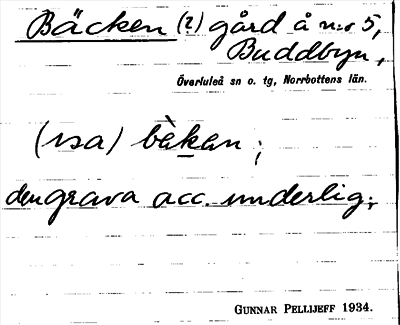 Bäcken (?) gård å n:o 5,
Buddbyn,
Överluleå sn o. tg, Norrbottens län.
(usa) bàkan ;
den grava acc. underlig;
GUNNAR PELLIJEFF 1934.